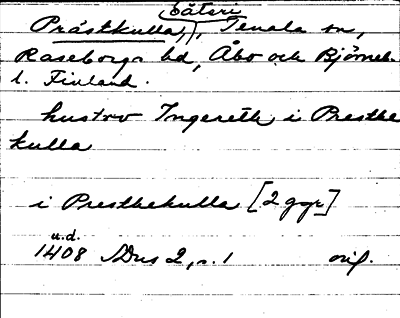 säteri
Prästkulla, Tenala sn,
Raseborgs hd, Åbo och Björneb.
l. Finland.
hustrv Ingereth i Presthe
kulla
i Presthekulla [2 ggr]
u.d.
1408 Dus 2, s. 1 orig.